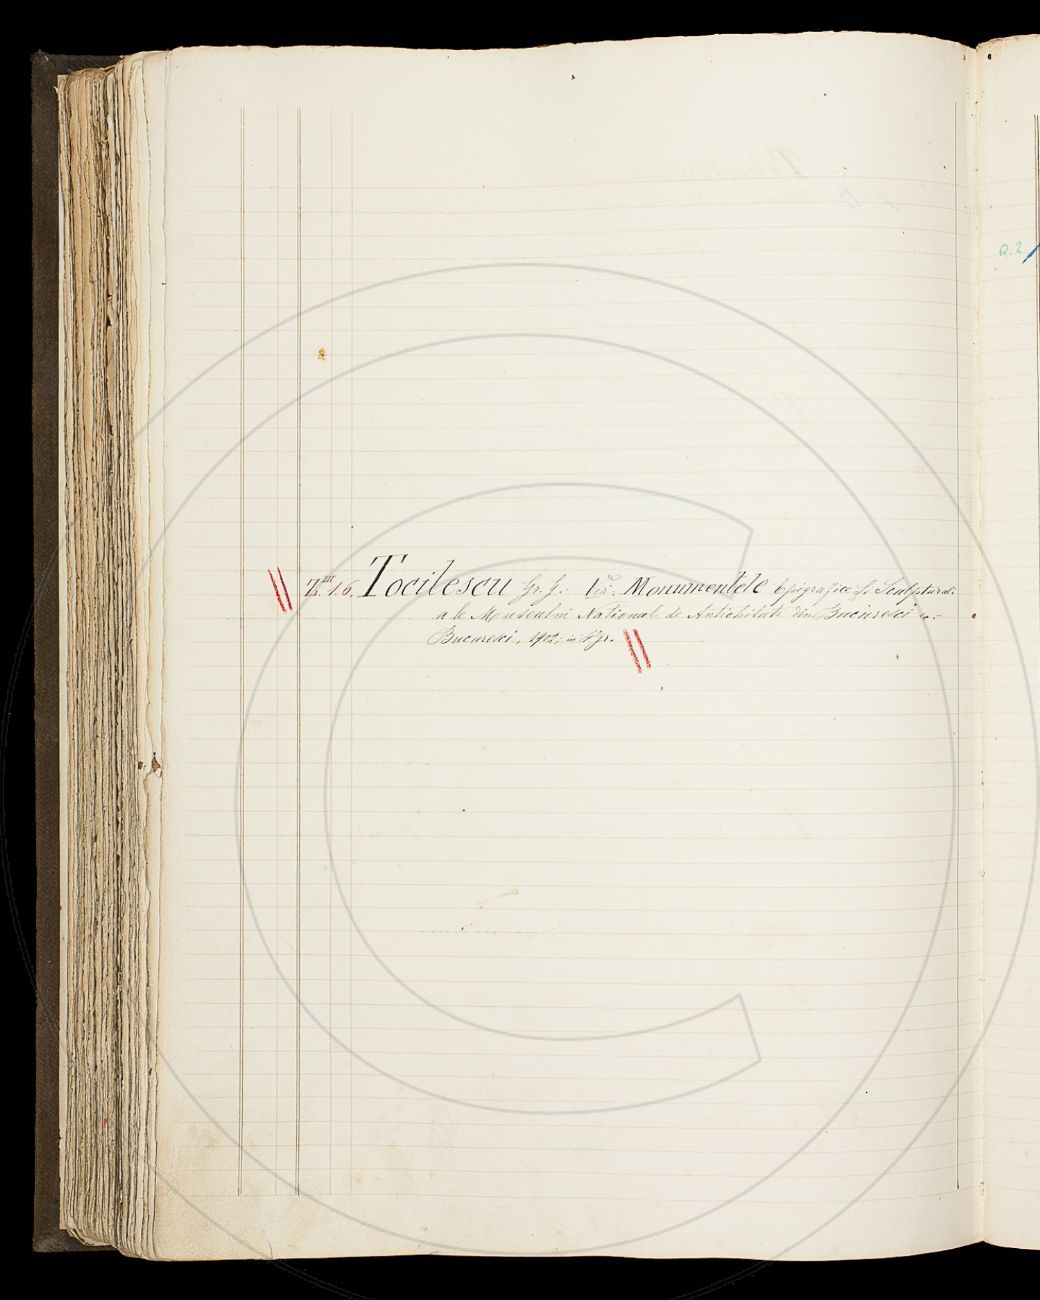 Q. 2
Z.III 1.6. Tocilescu Gr. G.: Monumentele Epigrafice și Sculpturali
ale Museului National de Antichitati din Bucuresci
Bucuresci, 1902; in 4gr.